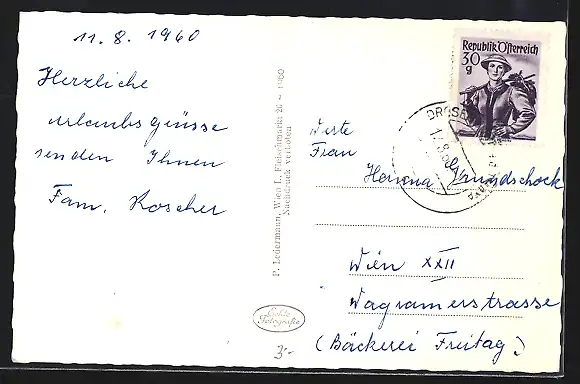 11. 8. 1960
Herzliche
urlaubsgrüsse
senden Ihnen
Fam. Roscher
P. Ledermann, Wien I., Fleischmarkt 20 – 1960
Nachdruck verboten
Echte
Fotografie
3.-
Republik Österreich
30
g
Werte
Frau
Grundschock
Wien XXII
Wagramerstrasse
(Bäckerei Freitag)